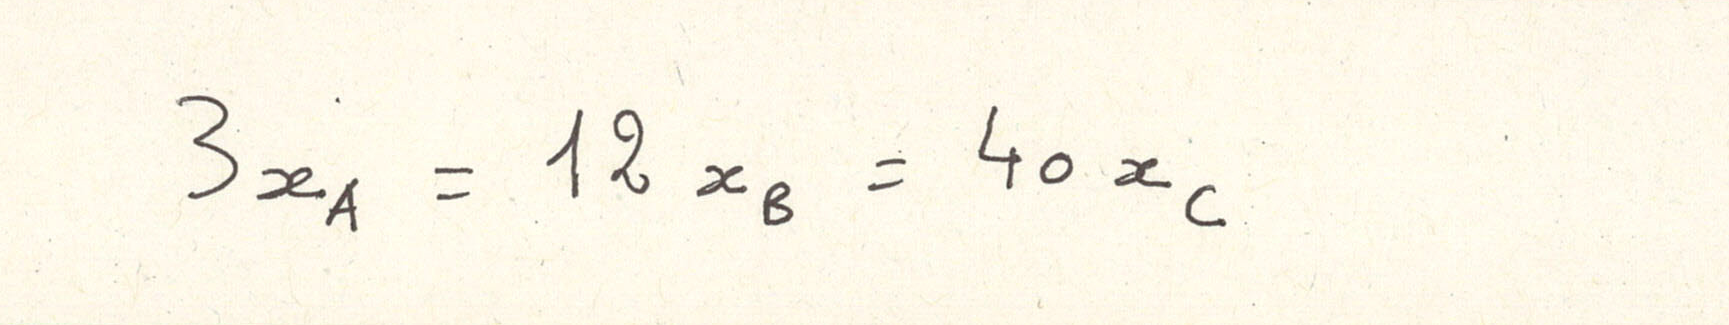 3x_A = 12x_B = 40x_C